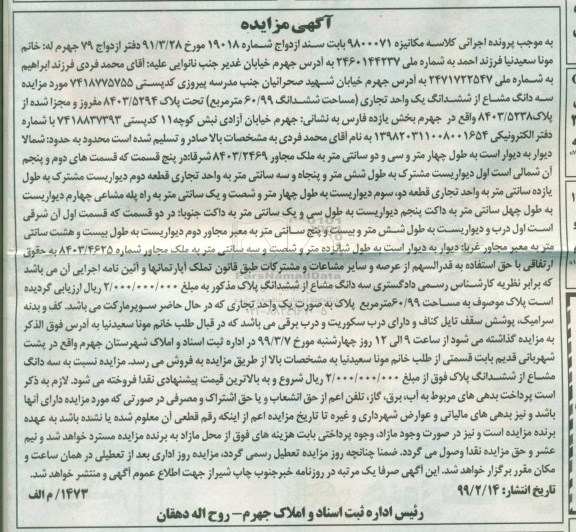 آگهی مزایده
به موجب پرونده اجرائی کلاسه مکانیزه ۹۸۰۰۰۷۱ بابت سند ازدواج شماره ۱۹۰۱۸ مورخ ۹۱/۳/۲۸ دفتر ازدواج ۷۹ جهرم له: خانم
مونا سعیدنیا فرزند احمد به شماره ملی ۲۴۶۰۱۴۴۲۳۷ به آدرس جهرم خیابان غدیر جنب نانوایی علیه: آقای محمد فردی فرزند ابراهیم
به شماره ملی ۲۴۷۱۷۲۲۵۴۷ به آدرس جهرم خیابان شهید صحرائیان جنب مدرسه پیروزی کدپستی ۷۴۱۸۷۷۵۷۵۵ مورد مزایده
سه دانگ مشاع از ششدانگ یک واحد تجاری (مساحت ششدانگ ۶۰/۹۹ مترمربع) تحت پلاک ۸۴۰۳/۵۲۹۴ مفروز و مجزا شده از
پلاک۸۴۰۳/۵۲۳۸ واقع در جهرم بخش یازده فارس به نشانی: جهرم خیابان آزادی نبش کوچه۱۱ کدپستی ۷۴۱۸۸۳۷۳۹۳ با شماره
دفتر الکترونیکی ۱۳۹۸۲۰۳۱۱۰۰۸۰۰۱۶۵۴ به نام آقای محمد فردی به مشخصات بالا صادر و تسلیم شده است محدود به حدود: شمالا
دیوار به دیوار است به طول چهار متر و سی و دو سانتی متر به ملک مجاور ۸۴۰۳/۲۴۶۹ شرقا:در پنج قسمت که قسمت های دوم و پنجم
آن شمالی است اول دیواریست مشترک به طول شش متر و پنجاه و سه سانتی متر به واحد تجاری قطعه دوم دیواریست مشترک به طول
یازده سانتی متر به واحد تجاری قطعه دو، سوم دیواریست به طول چهار متر و شصت و یک سانتی متر به راه پله مشاعی چهارم دیواریست
به طول چهل سانتی متر به داکت پنجم دیواریست به طول سی و یک سانتی متر به داکت جنوبا: در دو قسمت که قسمت اول آن شرقی
است اول درب و دیواریست به طول شش متر و بیست و پنج سانتی متر به معبر مجاور دوم دیواریست به طول بیست و هشت سانتی
متر به معبر مجاور غربا: دیوار به دیوار است به طول شانزده متر و شصت و سه سانتی متر به ملک مجاور شماره ۸۴۰۳/۴۶۲۵ به حقوق
ارتفاقی با حق استفاده به قدرالسهم از عرصه و سایر مشاعات و مشترکات طبق قانون تملک آپارتمانها و آئین نامه اجرایی آن می باشد
که برابر نظریه کارشناس رسمی دادگستری سه دانگ مشاع از ششدانگ پلاک مذکور به مبلغ ۲/۰۰۰/۰۰۰/۰۰۰ ریال ارزیابی گردیده
است پلاک موصوف به مساحت ۶۰/۹۹مترمربع پلاک به صورت یک واحد تجاری که در حال حاضر سوپرمارکت می باشد. کف و بدنه
سرامیک، پوشش سقف تایل کناف و دارای درب سکوریت و درب برقی می باشد که در قبال طلب خانم مونا سعیدنیا به آدرس فوق الذکر
به مزایده گذاشته می شود از ساعت ۹ الی ۱۲ روز چهارشنبه مورخ ۹۹/۳/۷ در اداره ثبت اسناد و املاک شهرستان جهرم واقع در پشت
شهربانی قدیم بابت قسمتی از طلب خانم مونا سعیدنیا به مشخصات بالا از طریق مزایده به فروش می رسد. مزایده نسبت به سه دانگ
مشاع از ششدانگ پلاک فوق از مبلغ ۲/۰۰۰/۰۰۰/۰۰۰ ریال شروع و به بالاترین قیمت پیشنهادی نقدا فروخته می شود. لازم به ذکر
است پرداخت بدهی های مربوط به آب، برق، گاز، تلفن اعم از حق انشعاب و یا حق اشتراک و مصرفی در صورتی که مورد مزایده دارای آنها
باشد و نیز بدهی های مالیاتی و عوارض شهرداری و غیره تا تاریخ مزایده اعم از اینکه رقم قطعی آن معلوم شده یا نشده باشد به عهده
برنده مزایده است و نیز در صورت وجود مازاد، وجوه پرداختی بابت هزینه های فوق از محل مازاد به برنده مزایده مسترد خواهد شد و نیم
عشر و حق مزایده نقدا وصول می گردد. ضمنا چنانچه روز مزایده تعطیل رسمی گردد، مزایده روز اداری بعد از تعطیلی در همان ساعت و
مکان مقرر برگزار خواهد شد. این آگهی صرفا یک مرتبه در روزنامه خبرجنوب چاپ شیراز جهت اطلاع عموم آگهی و منتشر خواهد شد.
تاریخ انتشار: ۹۹/۲/۱۴
۱۴۷۳/ م الف
رئیس اداره ثبت اسناد و املاک جهرم– روح اله دهقان